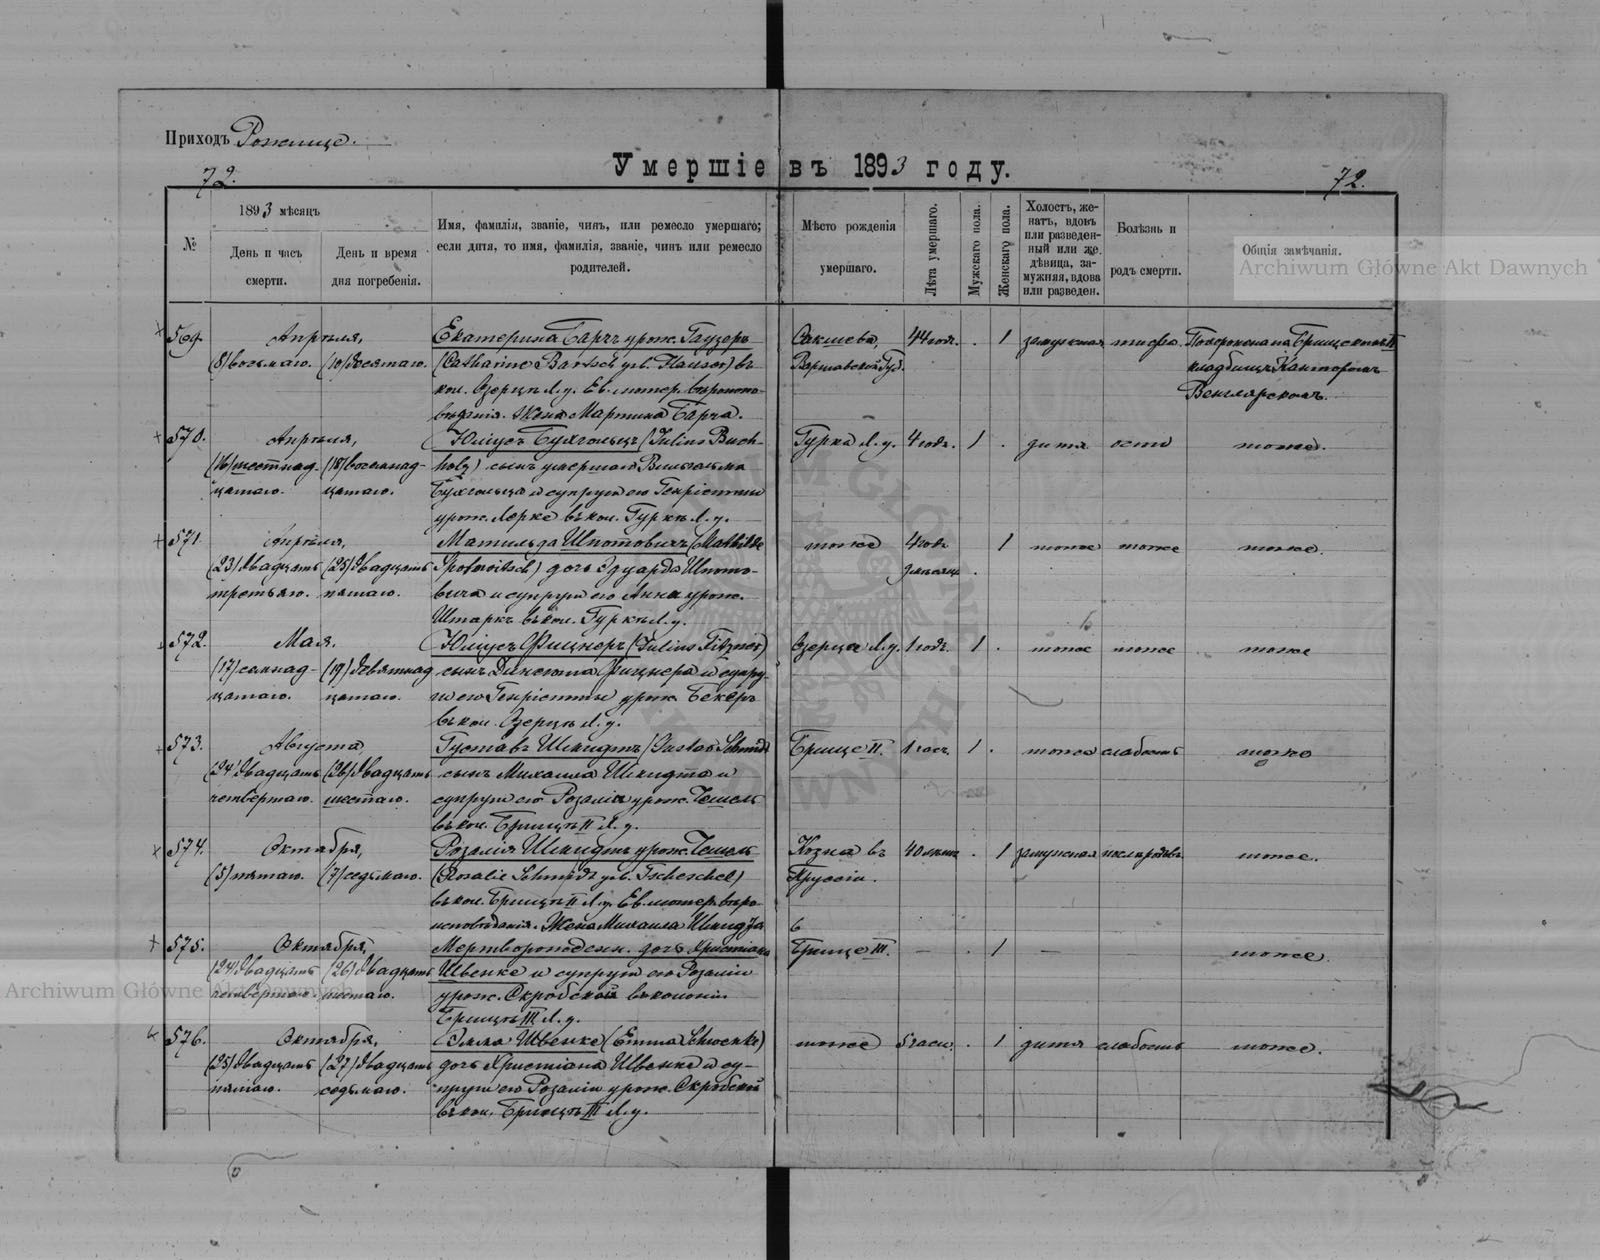 Приходъ Рожище.
Умершіе въ 1893 году.
72.
72.
№
1893 мѣсяцъ
День и часъ смерти.
День и время дня погребенія.
Имя, фамилія, званіе, чинъ, или ремесло умершаго; если дитя, то имя, фамилія, званіе, чинъ или ремесло родителей.
Мѣсто рожденія умершаго.
Лѣта умершаго.
Мужскаго пола.
Женскаго пола.
Холостъ, женатъ, вдовъ или разведенный или же дѣвица, замужняя, вдова или разведен.
Болѣзнь и родъ смерти.
Общія замѣчанія.
Archiwum Główne Akt Dawnych
569. Апрѣля, Екатерина Барчъ урож. Гаузеръ Сакшева, 44 год. . 1 замужняя тифъ. Похоронена на Брище II
(8) восьмаго. (10) десятаго. (Catharine Bartsch geb. Hauser) въ Варшавской Губ. кладбищѣ Канторомъ
кол. Озерцѣ Л. у. Ев. лютер. вѣроиспо-
вѣданія. Жена Мартина Барча.
570. Апрѣля, Юліусъ Бухгольцъ (Julius Buch- Гурка Л. у. 4 год. 1 . дитя оспа тоже.
(16) шестнад- (18) восемнад- holz) сынъ умершаго Вильгельма
цатаго. цатаго. Бухгольца и супруги его Генріетты
урож. Лерке въ кол. Гуркѣ Л. у.
571. Апрѣля, Матильда Шпотовичъ (Mathilde тоже 4 год 1 тоже тоже тоже.
(23) двадцать (25) двадцать дочь Эдуарда Шпото-
третьяго. пятаго. вича и супруги его Анна урож.
Штаркъ въ кол. Гуркѣ Л. у.
572. Мая. Юліусъ Фицнеръ (Julius Fitzner) Озерцы Л. у. 1 год. 1 . тоже тоже тоже
(17) семнад- (19) девятнад сынъ Фицнера и супру-
цатаго. цатаго. ги его Генріетты урож. Бекеръ
въ кол. Озерцѣ Л. у.
573. Августа, Густавъ Шмидтъ (Gustav Schmidt Брище II. 1 час. 1 . тоже слабость тоже
(24) двадцать (26) двадцать сынъ Михаила Шмидта и
четвертаго. шестаго. супруги его Розаліи урож. Чешель
въ кол. Брищѣ II Л. у.
574. Октября, Розалія Шмидтъ урож. Чешель Козна въ 40 лѣтъ . 1 замужняя тоже.
(5) пятаго. (7) седьмаго. (Rosalie Schmidt geb. Tscheschel) Пруссіи.
въ кол. Брищѣ II Л. у. Ев. лютер. вѣро-
исповѣданія. Жена Михаила Шмидта
575. Октября, Мертворожден. дочь Христіана Брище III. — . 1 — тоже.
(24) двадцать (26) двадцать Швенке и супруги его Розаліи
четвертаго. шестаго. урож. Скробской въ колоніи
Брищѣ III Л. у.
576. Октября, Эмма Швенке (Emma Schwenke) тоже 5 час. . 1 дитя слабость тоже.
(25) двадцать (27) двадцать дочь Христіана Швенке и су-
пятаго. седьмаго. пруги его Розаліи урож. Скробской
въ кол. Брищѣ III Л. у.
Archiwum Główne Akt Dawnych